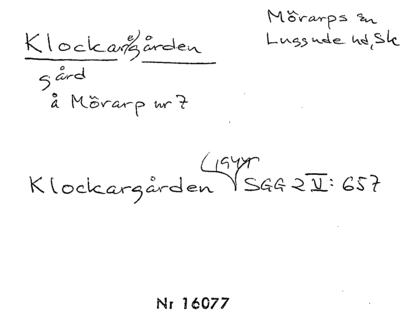 Klockar(e)gården
Mörarps sn
Luggude hd, Sk
gård
å Mörarp nr 7
Klockargården SGG 2 V: 657
Nr 16077